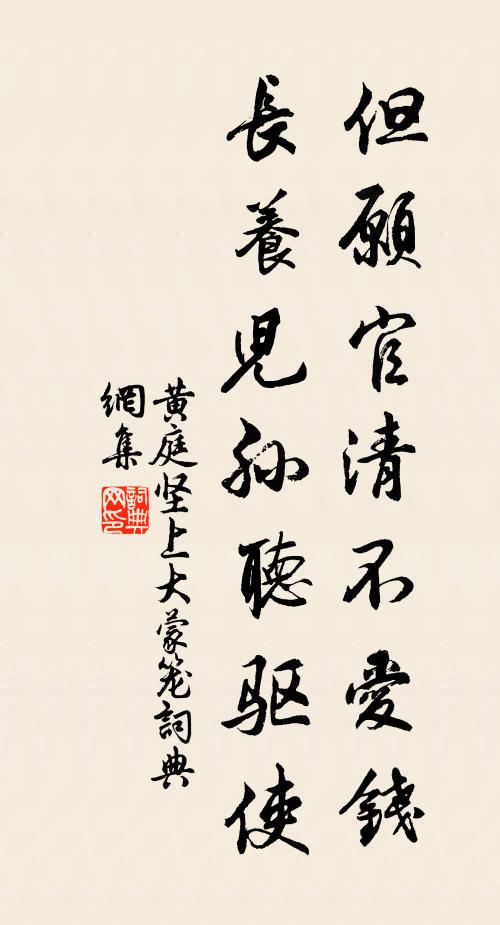 但願官清不愛錢
長養児孫聽驱使
黄庭坚上大蒙笼詞典
網集
詞典
网印